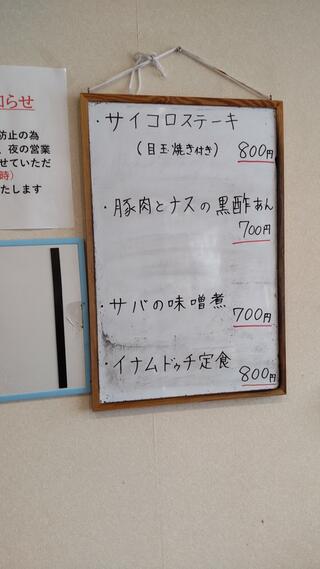 らせ
防止の為
、夜の営業
せていただ
時）
たします
・サイコロステーキ
（目玉焼き付き） 800円
・豚肉とナスの黒酢あん
700円
・サバの味噌煮
700円
・イナムドゥチ定食
800円